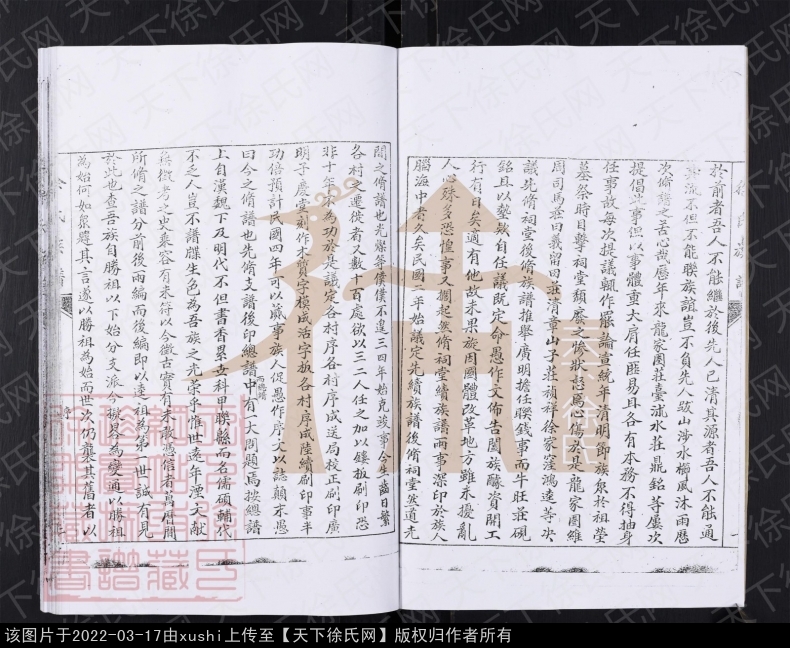 於前者吾人不能繼於後先人已清其源者吾人不能通
其流不但不能聯族誼豈不負先人跋山涉水櫛風沐雨歷
次脩譜之苦心哉歷年來龍家圈莊臺沭水莊鼎銘等屢次
提倡此事但以事體重大肩任匪易且各有本務不得抽身
任事故每次提議輒作罷論宣統年清明節族衆於祖塋
墓祭將目擊祠堂頹靡之慘狀惄焉心傷於是龍家圈維
周司馬莊曰義留田莊清章山子莊禎祥徐家窪鴻逵等决
議先脩祠堂後脩族譜推舉廣明擔任聯錢事而牛旺莊硯
銘且以墊欵自任議既定命愚作文佈告闔族釀資開工
行有日矣適有他故未果旋因國體改革地方雖未擾亂
人心殊多恐惶事又擱起然脩祠堂續族譜兩事深印於族人
腦海中者久矣民國二年始議定先續族譜後脩祠堂然道光
間之脩譜也光燦等僕僕不遑三四年始克竣事今生齒日繁
各村之遷徙者又數十百處欲以三二人任之加以鏤板刷印恐
非十年不為功於是議定各村序各村序成送局校正刷印廣
明子慶堂刻作木質字模成活字板各村序成陸續刷印事半
功倍預計民國四年可以蕆事族人促愚作序文以誌顛末愚
曰今之脩譜也先脩支譜後印總譜中有一大問題焉按總譜
而總譜
上自漢魏下及明代不但書香累古科甲聯緜而名儒碩輔代
不乏人豈不譜牒生色為吾族之光榮乎惟世遠年湮文献
無徵考之史乘容有未符以今徵古實有未敢憑信者萬曆間
所脩之譜分前後兩編而後編即以達祖為第一世誠有見
於此也查吾族自勝祖以下始分支派今擬畧為變通以勝祖
為始何如衆韙其言遂以勝祖為始而世次仍襲其舊者以
徐氏族譜
天下徐氏网
该图片于2022-03-17由xushi上传至【天下徐氏网】版权归作者所有